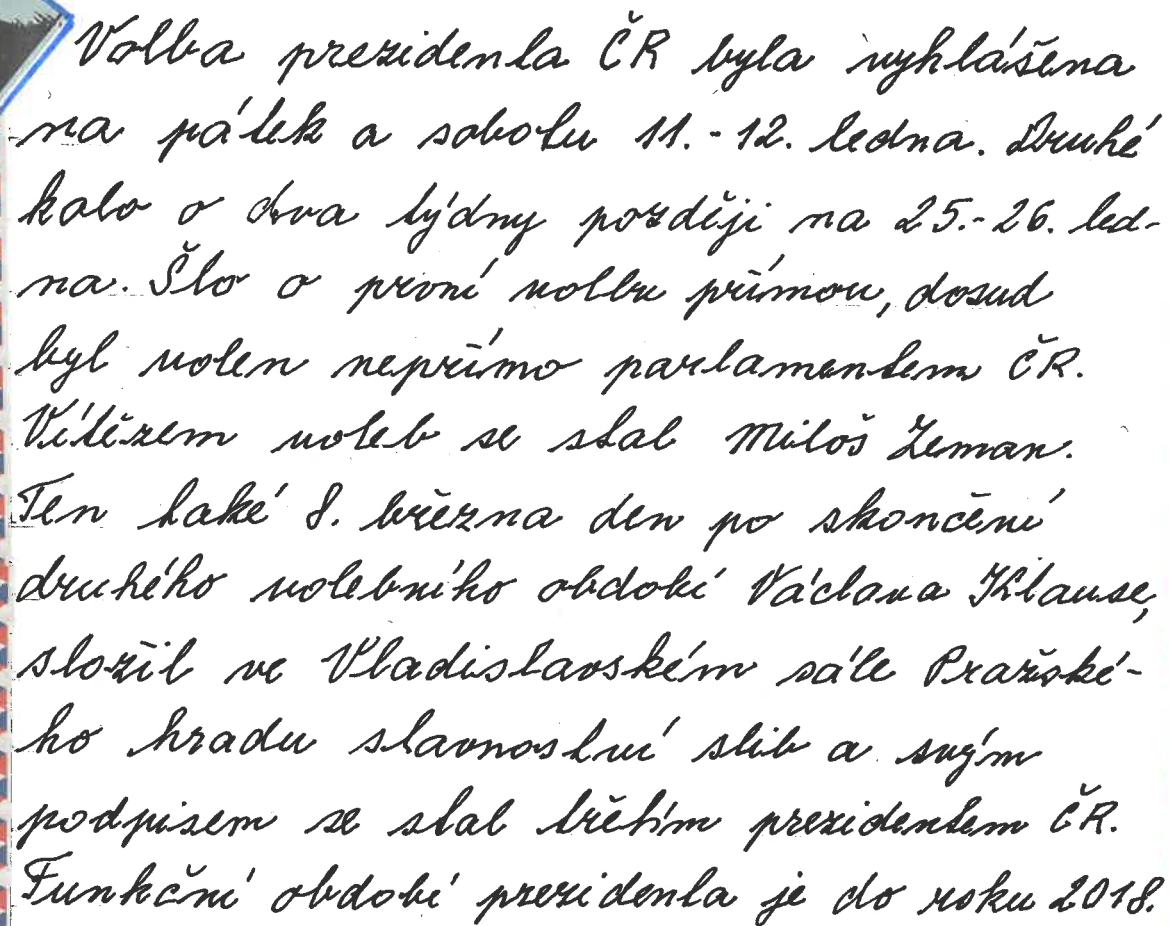 Volba prezidenta ČR byla vyhlášena
na pátek a sobotu 11.-12. ledna. Druhé
kolo o dva týdny později na 25.-26. led-
na. Šlo o první volbu přímou, dosud
byl volen nepřímo parlamentem ČR.
Vítězem voleb se stal Miloš Zeman.
Ten také 8. března den po skončení
druhého volebního období Václava Klause,
složil ve Vladislavském sále Pražské-
ho hradu slavnostní slib a svým
podpisem se stal třetím prezidentem ČR.
Funkční období prezidenta je do roku 2018.